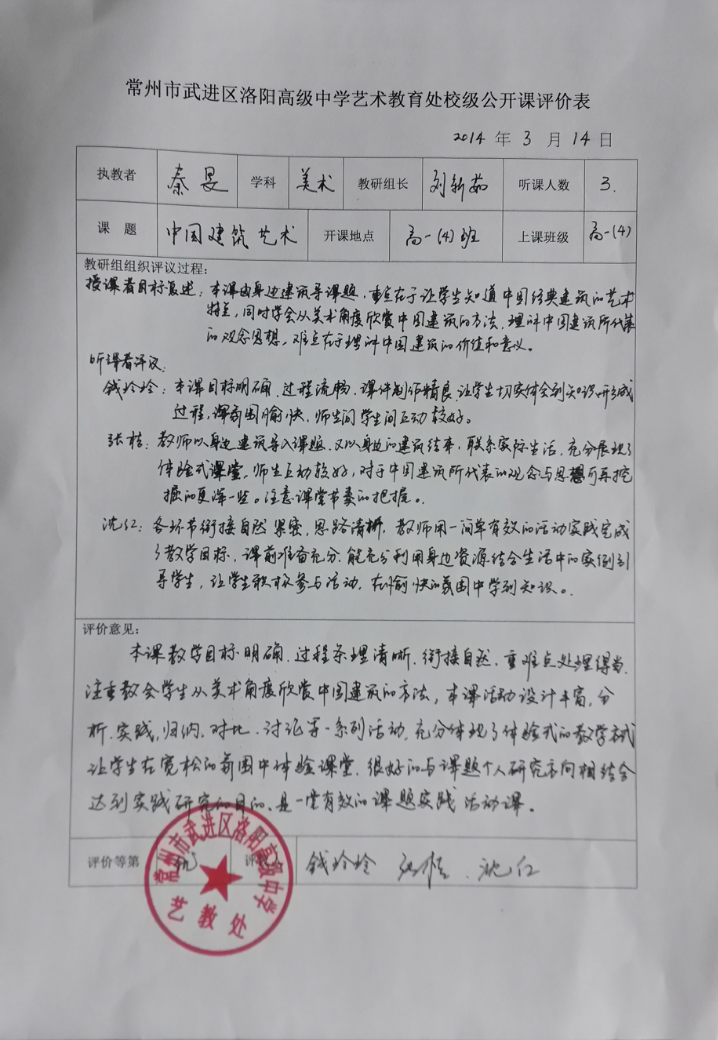 常州市武进区洛阳高级中学艺术教育处校级公开课评价表
2014 年 3 月 14 日
执教者 秦旻 学科 美术 教研组长 刘新茹 听课人数 3.
课 题 中国建筑艺术 开课地点 高一(4)班 上课班级 高一(4)
教研组组织评议过程：
授课者目标复述：本课由身边建筑导课题，重点在于让学生知道中国经典建筑的艺术
特点，同时学会从美术角度欣赏中国建筑的方法，理解中国建筑所代表
的观念思想。难点在于理解中国建筑的价值和意义。
听课者评议：
钱玲玲：本课目标明确、过程流畅、课件制作精良，让学生切实体会到知识形成
过程，课氛围愉快，师生间学生间互动较好。
张桔：教师以身边建筑导入课题，又以身边的建筑结束，联系实际生活，充分展现了
体验式课堂，师生互动较好，对于中国建筑所代表的观念与思想可再挖
掘的更深一些。注意课堂节奏的把握。
沈仁：各环节衔接自然 紧密，思路清晰，教师用一简单有效的活动实践完成
了教学目标，课前准备充分，能充分利用身边资源结合生活中的实例引
导学生，让学生积极参与活动，在愉快的氛围中学到知识。
评价意见：
本课教学目标明确、过程条理清晰，衔接自然，重难点处理得当
注重教会学生从美术角度欣赏中国建筑的方法，本课活动设计丰富，分
析、实践，归纳、对比、讨论等一系列活动，充分体现了体验式的教学模式
让学生在宽松的氛围中体验课堂，很好的与课题个人研究方向相结合
达到实践研究的目的，是一堂有效的课题实践活动课。
评价等第 优 评 钱玲玲 沈仁
常州市武进区洛阳高级中学
艺教处